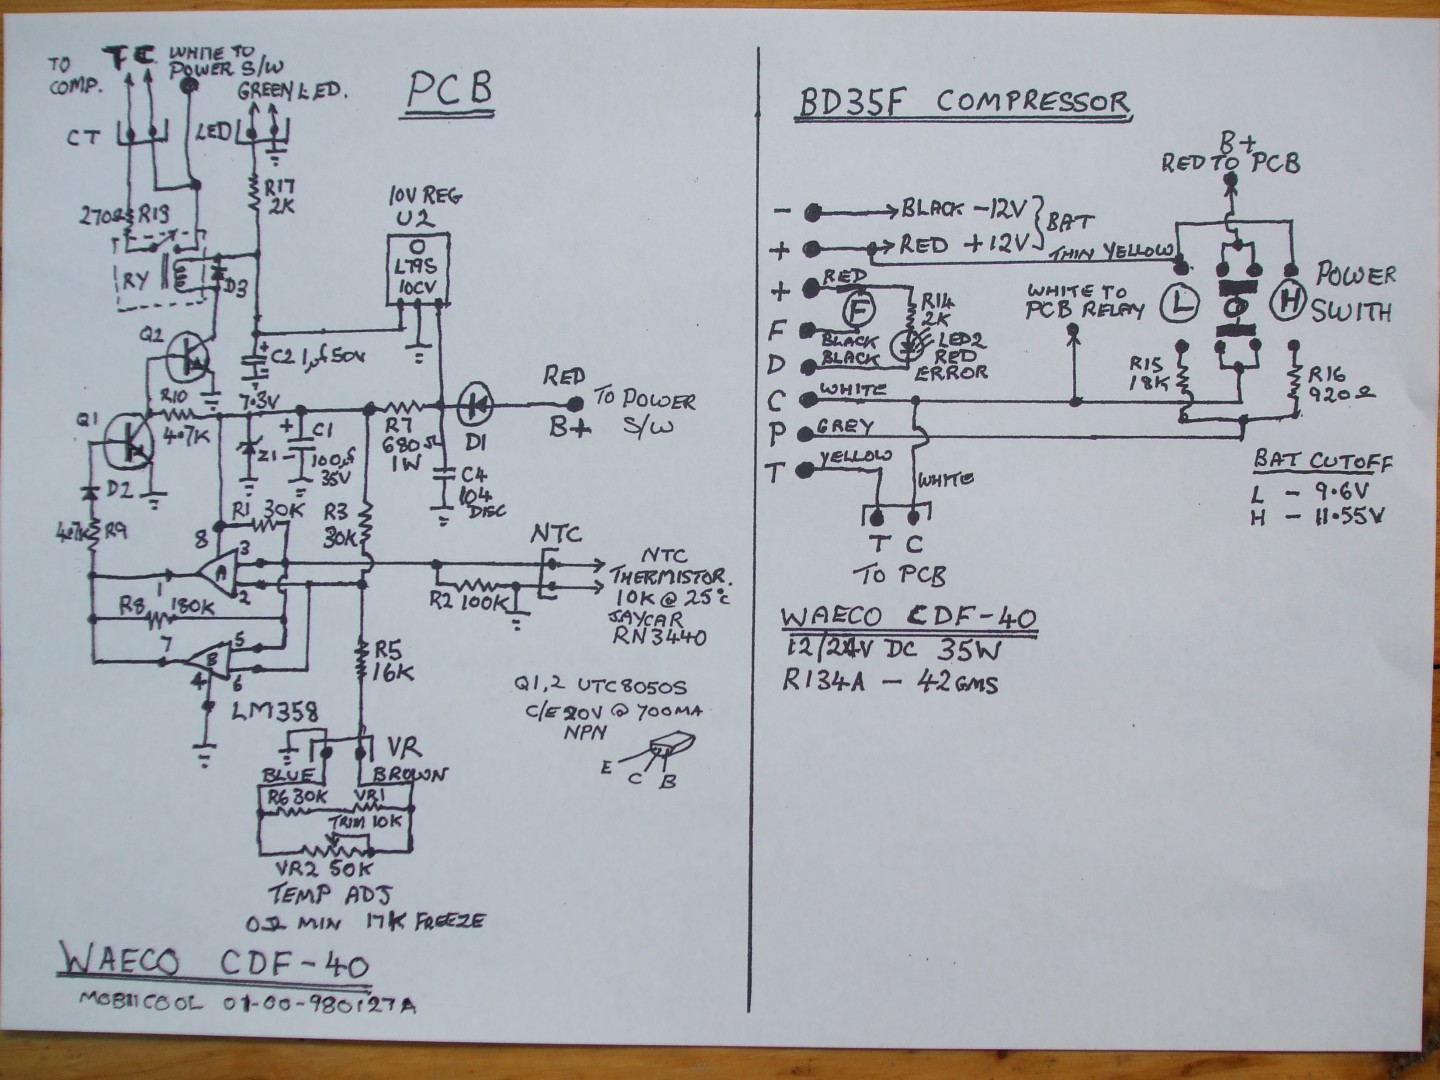 TO COMP.
T C
WHITE TO POWER S/W
GREEN LED.
PCB
CT
LED
R17 2K
10V REG
U2
L79S
10CV
270Ω R13
RY
D3
Q2
C2 1µf 50V
7.3V
R10
4.7K
Q1
D2
Z1
+ C1
100µf
35V
R7
680Ω
1W
D1
RED
B+
TO POWER S/W
C4
104
DISC
47K R9
R1 30K
R3
30K
8
3
A
1
2
R8 180K
7
5
B
4
6
LM358
NTC
R2 100K
NTC
THERMISTOR.
10K @ 25°C
JAYCAR
RN3440
R5
16K
Q1,2 UTC8050S
C/E 20V @ 700MA
NPN
E C B
VR
BLUE
BROWN
R6 30K
VR1
TRIM 10K
VR2 50K
TEMP ADJ
0Ω MIN 17K FREEZE
WAECO CDF-40
MOBIICOOL 01-00-980127A
BD35F COMPRESSOR
B+
RED TO PCB
- BLACK -12V
+ RED +12V
BAT
THIN YELLOW
+ RED
F
R14
2K
F BLACK
D BLACK
LED2
RED
ERROR
WHITE TO
PCB RELAY
L
O
H
POWER
SWITH
R15
18K
R16
920Ω
C WHITE
P GREY
T YELLOW
WHITE
T C
TO PCB
BAT CUTOFF
L - 9.6V
H - 11.55V
WAECO CDF-40
12/24V DC 35W
R134A - 42GMS